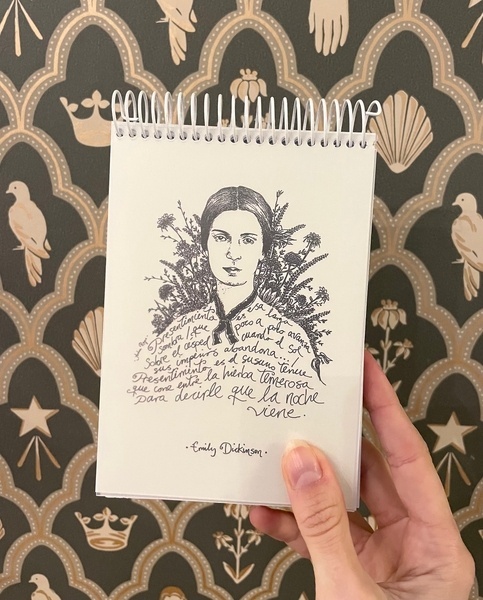 Presentimiento es esa larga
sombra que poco a poco avanza
sobre el césped cuando el sol
sus imperios abandona...
Presentimiento es el susurro tenue
que corre entre la hierba temerosa
para decirle que la noche
viene.
·Emily Dickinson·